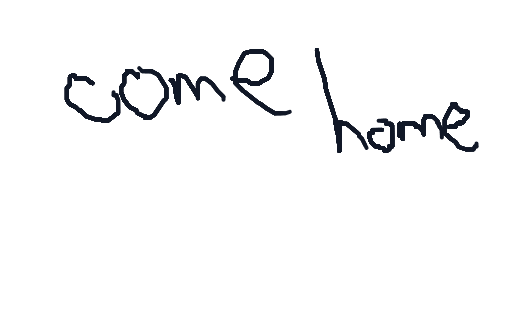 come home